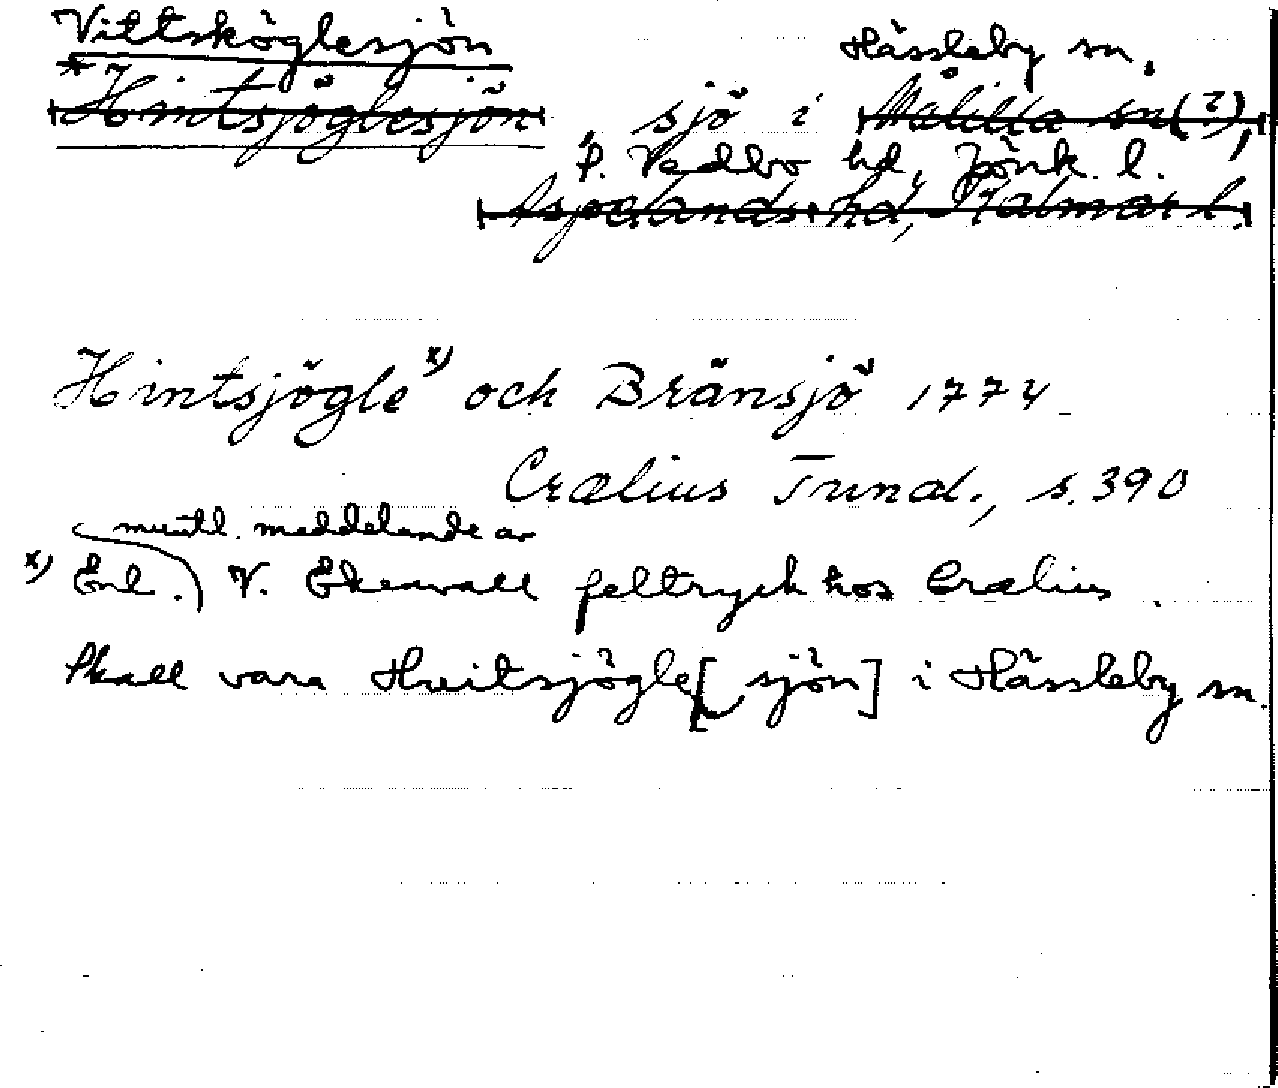 Vittsköglesjön
Hässleby sn.
*Hintsjöglesjön, sjö i Målilla sn(?),
S. Vedbo hd, Jönk. l.
Aspelands hd, Kalmar l.
Hintsjögle x) och Bränsjö 1774
Crælius Tund., s. 390
muntl. meddelande av
x) Enl. V. Ekenvall feltryck hos Crælius.
Skall vara Hvitsjögle[sjön] i Hässleby sn.